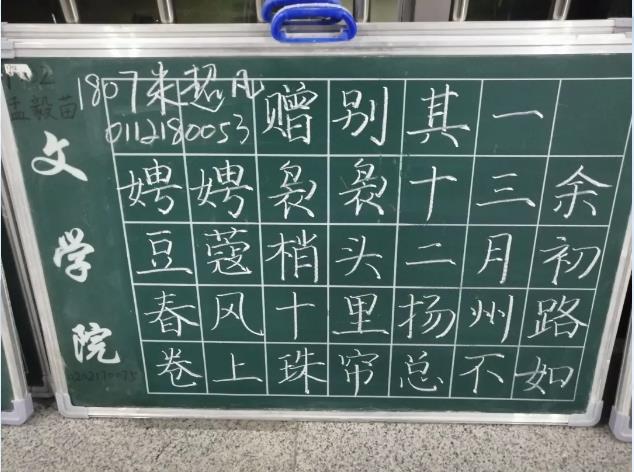 1807 超凡
0112180053
孟毅苗
文学院
赠别其一
娉娉袅袅十三余
豆蔻梢头二月初
春风十里扬州路
卷上珠帘总不如